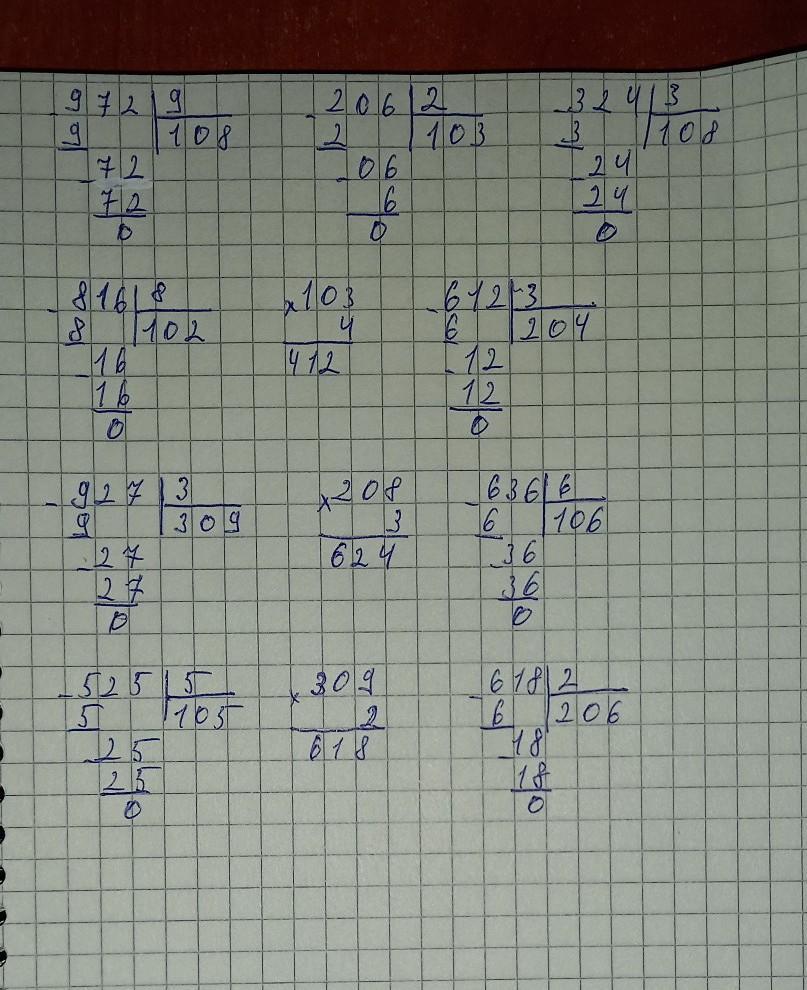 - 972 | 9 - 206 | 2 - 324 | 3
9 | 108 2 | 103 3 | 108
- 72 - 06 - 24
72 6 24
0 0 0
- 816 | 8 × 103 - 612 | 3
8 | 102 4 6 | 204
- 16 412 - 12
16 12
0 0
- 927 | 3 × 208 - 636 | 6
9 | 309 3 6 | 106
- 27 624 - 36
27 36
0 0
- 525 | 5 × 309 - 618 | 2
5 | 105 2 6 | 206
- 25 618 - 18
25 18
0 0